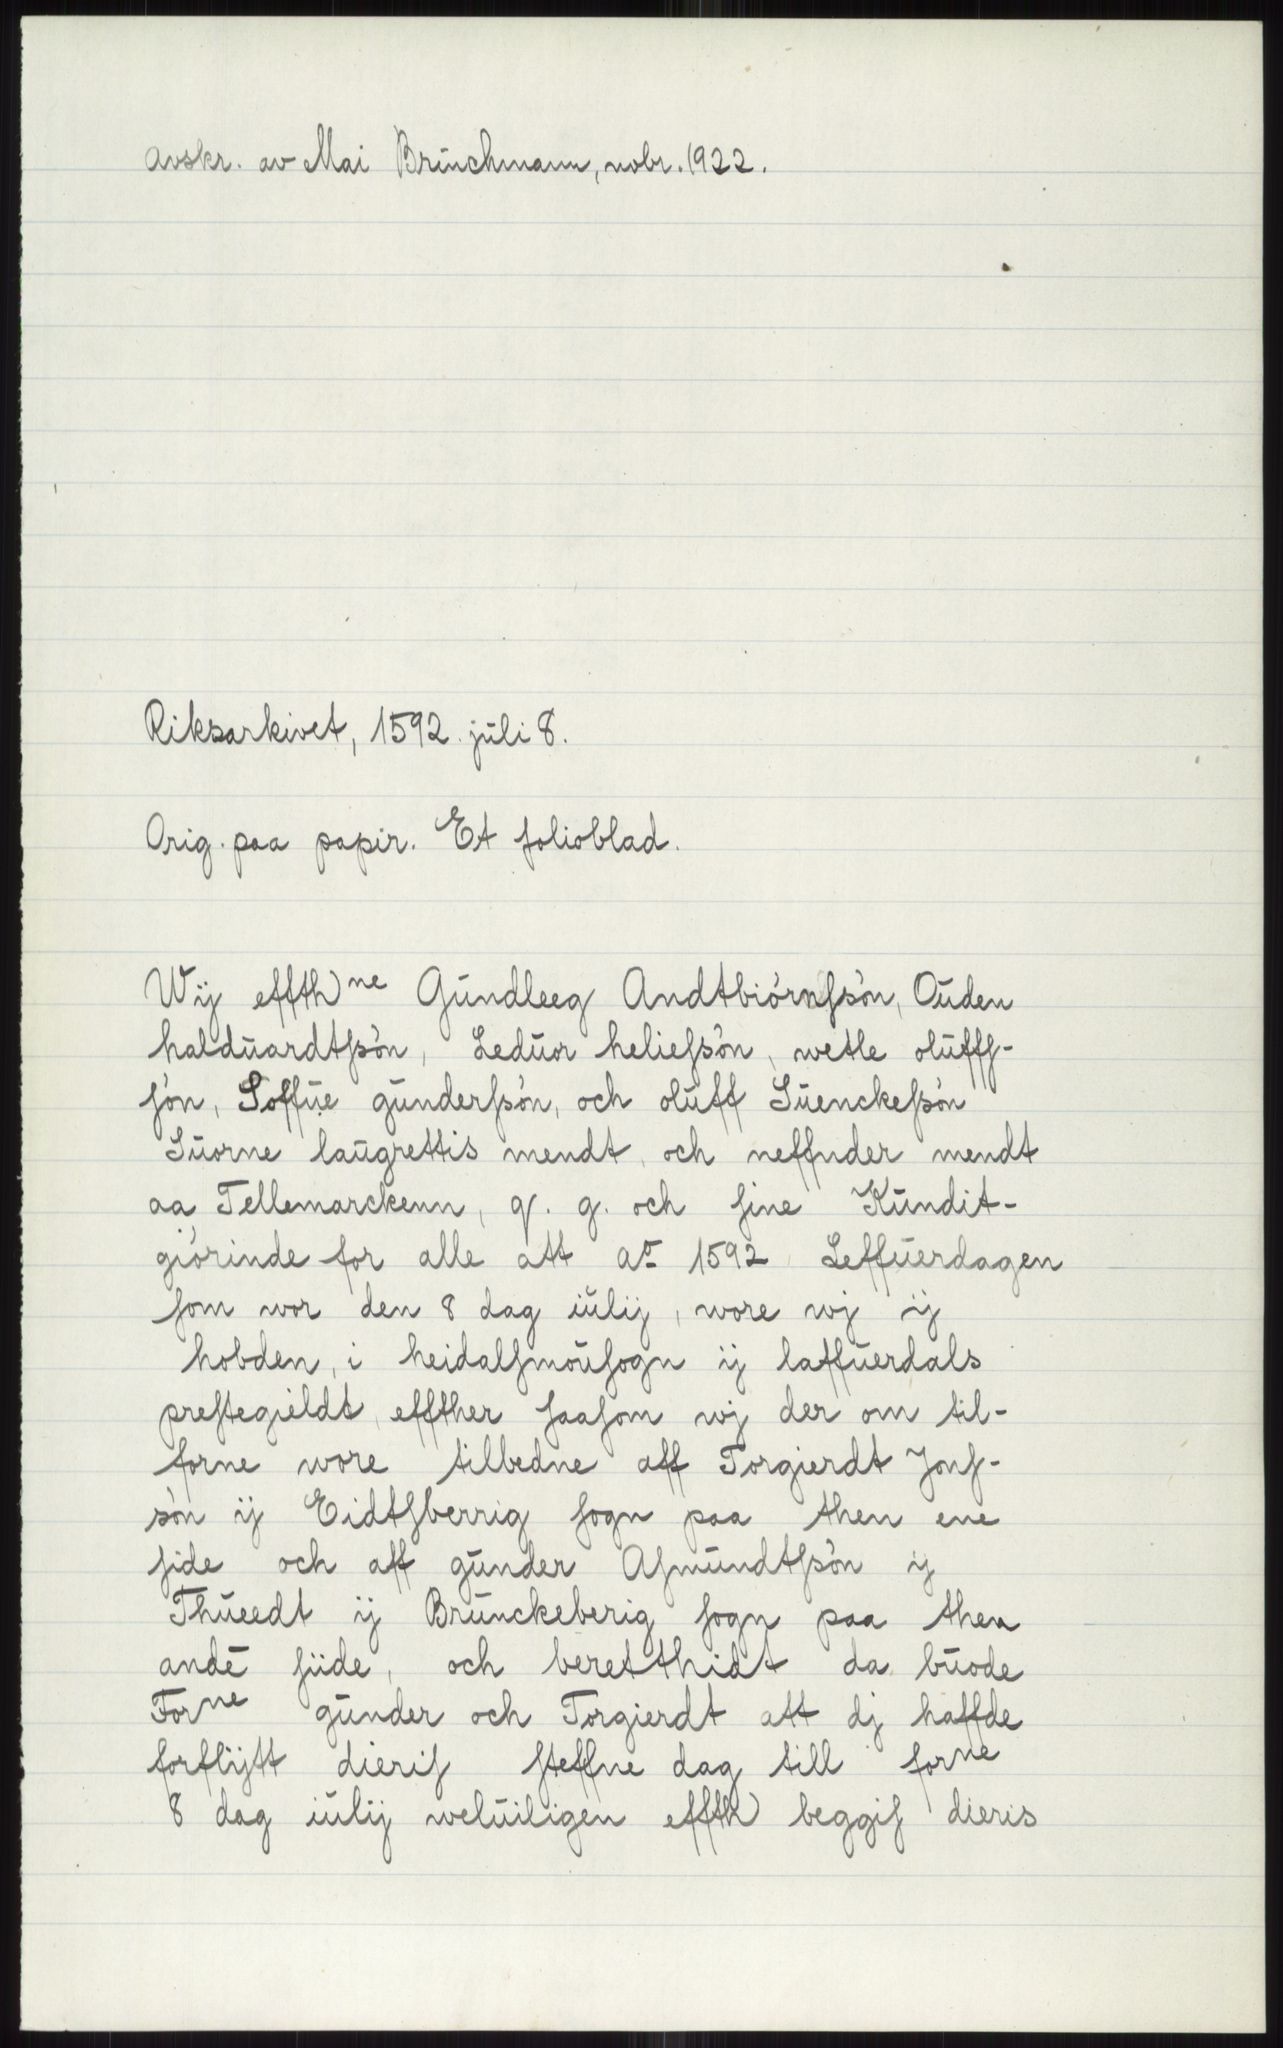 Avskr. av Mai Brünchmann, nobr. 1922.
Riksarkivet, 1592. jüli 8.
Orig. paa papir. Et folioblad.
Wij effth^ne Gündleeg Andtbiörnſsön, Oüden
haldüardtſsön, Ledüor helieſsön, wetle olüffſ-
ſön, Soffüe günderſsön, och olüff Süenckeſsön
Süorne laügrettis mendt, och neffnder mendt
aa Tellemarckenn, q. g. och ſine Kündit-
giörinde for alle att a° 1592 Leffüerdagen
ſom wor den 8 dag iülij, wore wj ij
hobden, i heidalſmoüſogn ij laffüerdals
preſtegieldt, effther ſaaſom wj der om til-
forne wore tilbedne aff Torgierdt Jonſ-
sön ij Eidtſberrig ſogn paa then ene
ſide och aff günder Aſmündtſsön ij
Thüeedt ij Brünckeberig ſogn paa then
andē ſiide, och beretthidt da büode
For^ne günder och Torgierdt att dj haffde
forflijtt dieriſ ſteffne dag till for^ne
8 dag iülij welüiligen effth beggiſ dieris